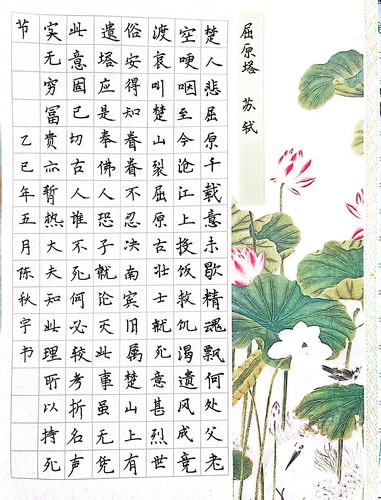 屈原塔 苏轼
楚人悲屈原千载意未歇精魂飘何处父老
空哽咽至今沧江上投饭救饥渴遗风成竞
渡哀叫楚山裂屈原古壮士就死意甚烈世
俗安得知眷眷不忍决南宾旧属楚山上有
遗塔应是奉佛人恐子就沦灭此事虽无凭
此意固已切古人谁不死何必较考折名声
实无穷富贵亦暂热大夫知此理所以持死
节 乙巳年五月陈秋宇书